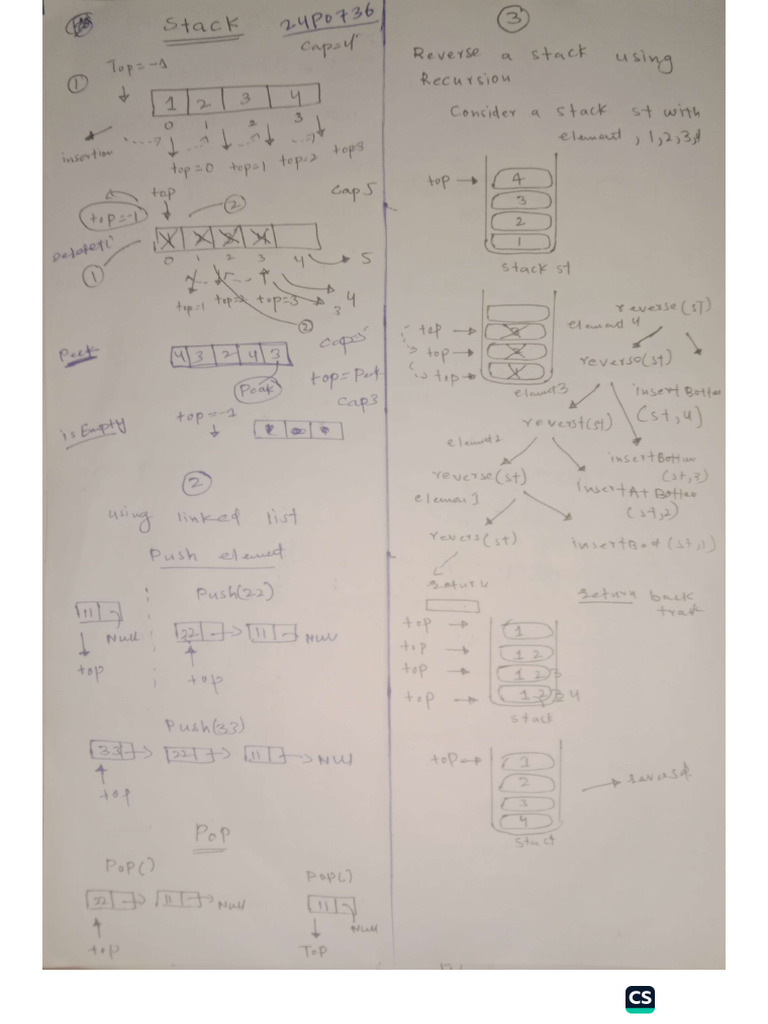 Stack
24P0736
Cap=4
①
Top=-1
1 2 3 4
0 1 2 3
insertion
top=0 top=1 top=2 top3
top
Cap 5
top=-1
②
1 2 3 4
0 1 2 3 4 5
①
top=1 top=2 top=3
3 4
②
Peek
4 3 2 4 3
Cap5
Peak
top=Peak
Cap3
isEmpty
top=-1
②
using linked list
Push element
Push(22)
11
Null
top
22 11 Null
top
Push(33)
33 22 11 Null
top
Pop
Pop()
22 11 Null
top
Pop()
11
Null
Top
③
Reverse a stack using
Recursion
Consider a stack st with
element, 1,2,3,4
top
4
3
2
1
stack st
reverse(st)
element 4
top
3
top
2
top
1
reverse(st)
element 3
insertBottom
(st,4)
reverst(st)
element 2
insertBottom
(st,3)
reverse(st)
insertAtBottom
(st,2)
element 1
revers(st)
insertBot(st,1)
return
return back
trak
top 1
top 1 2
top 1 2 3
top 1 2 3 4
stack
top
1
2
3
4
reversed
Stact
CS